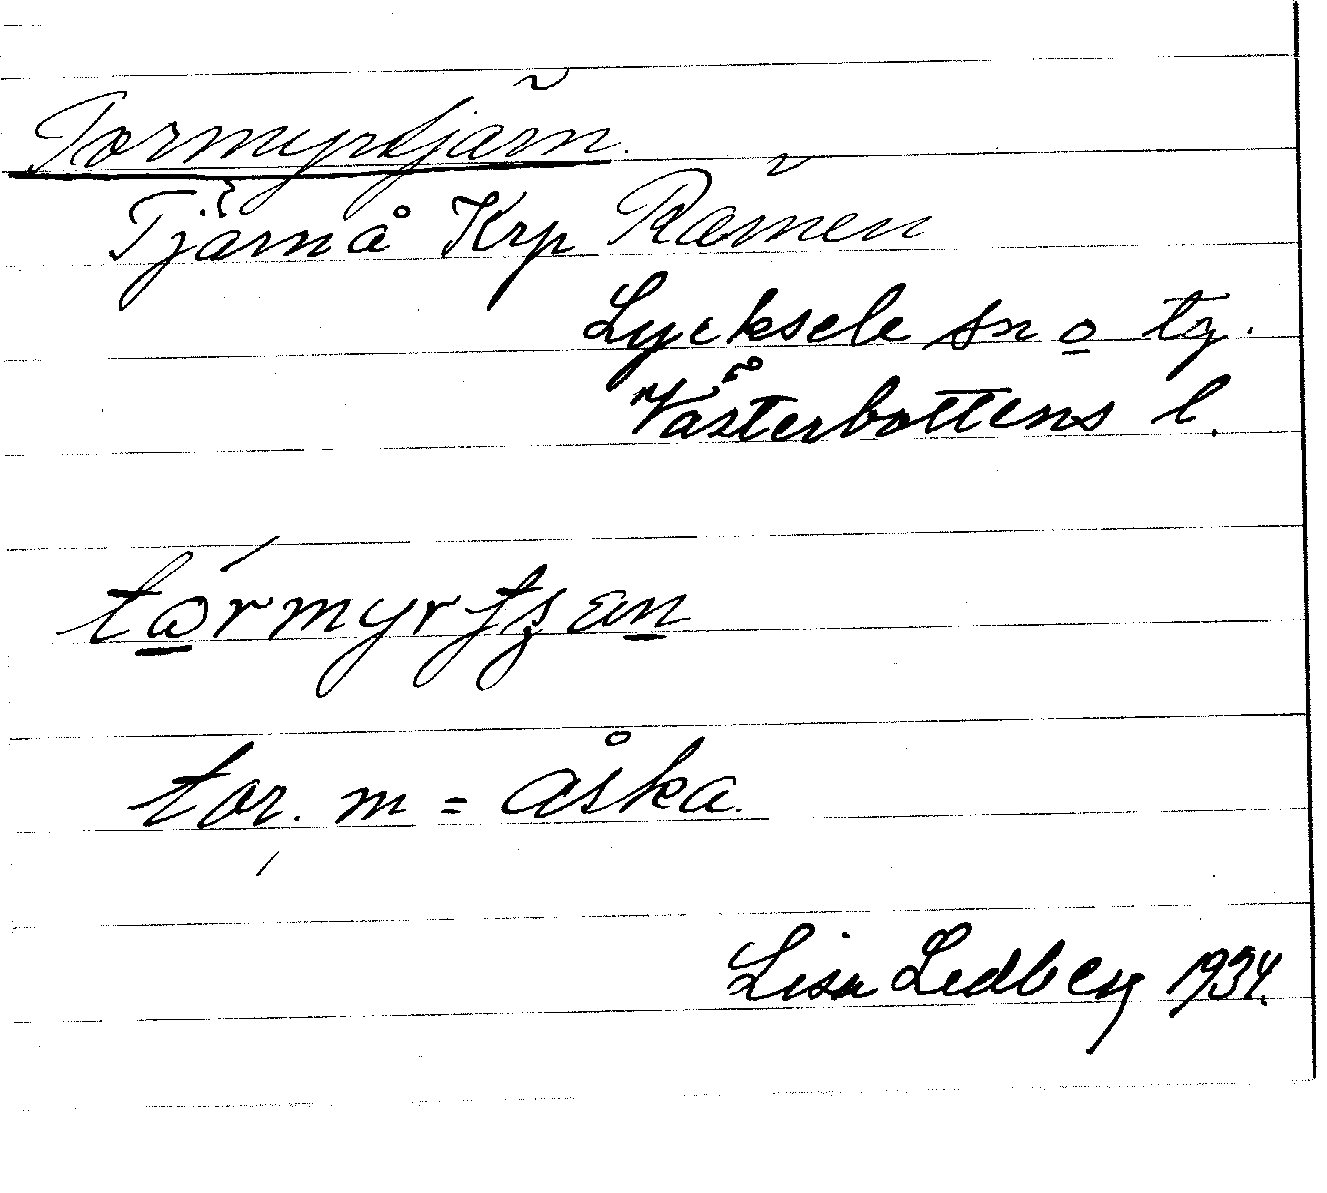 Tormyrtjärn.
Tjärn å Krp Råmen
Lycksele sn o tg.
Västerbottens l.
tormyrtʂæn
tor. m = åska.
Lisa Lidberg 1934.